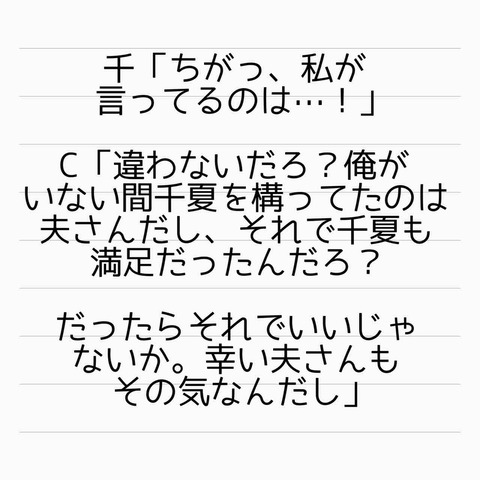 千「ちがっ、私が
言ってるのは…！」
C「違わないだろ？俺が
いない間千夏を構ってたのは
夫さんだし、それで千夏も
満足だったんだろ？
だったらそれでいいじゃ
ないか。幸い夫さんも
その気なんだし」